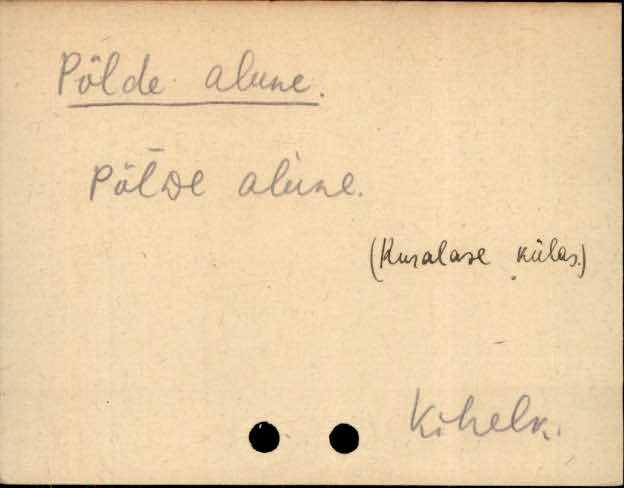 Põlde alune.
põlDe alu̬ne.
(Kuralase külas.)
Kihelk.